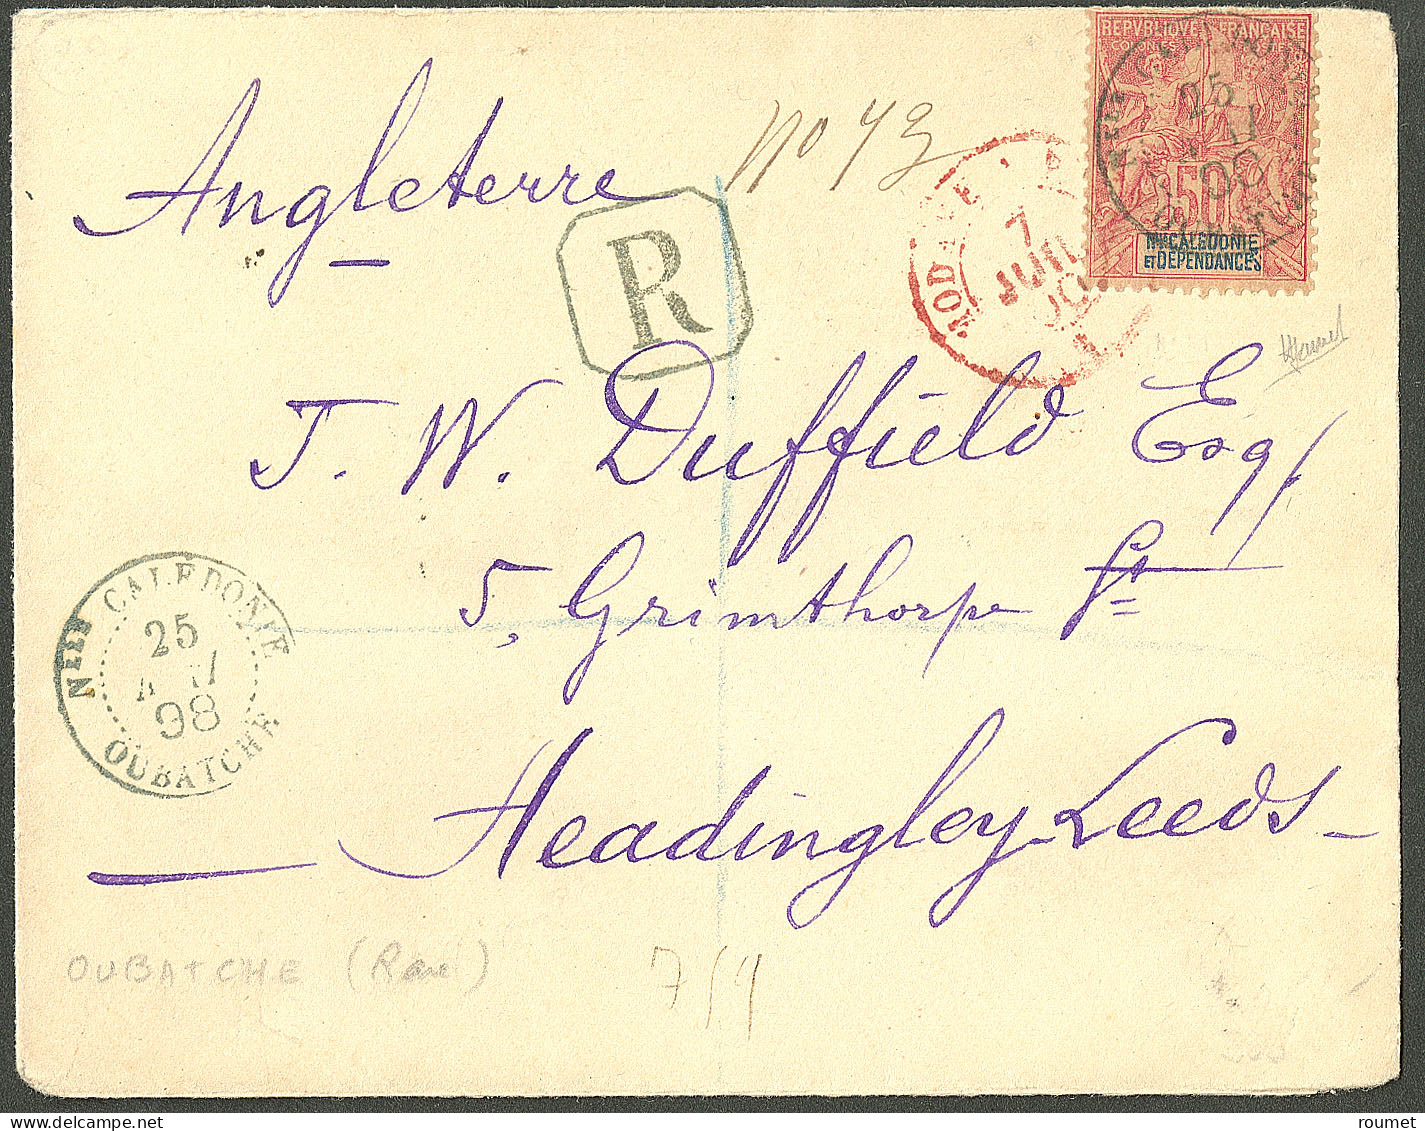 REPVBLIQVE FRANÇAISE
COLONIES
25
50
Nlle CALEDONIE
ET DÉPENDANCES
Angleterre
No 73
R
7
JUIL
J. W. Duffield Esq/
5, Grimthorpe St
Headingley-Leeds-
NLLE CALEDONIE
25
98
OUBATCHE
OUBATCHE (Rare)
7/9
roumet